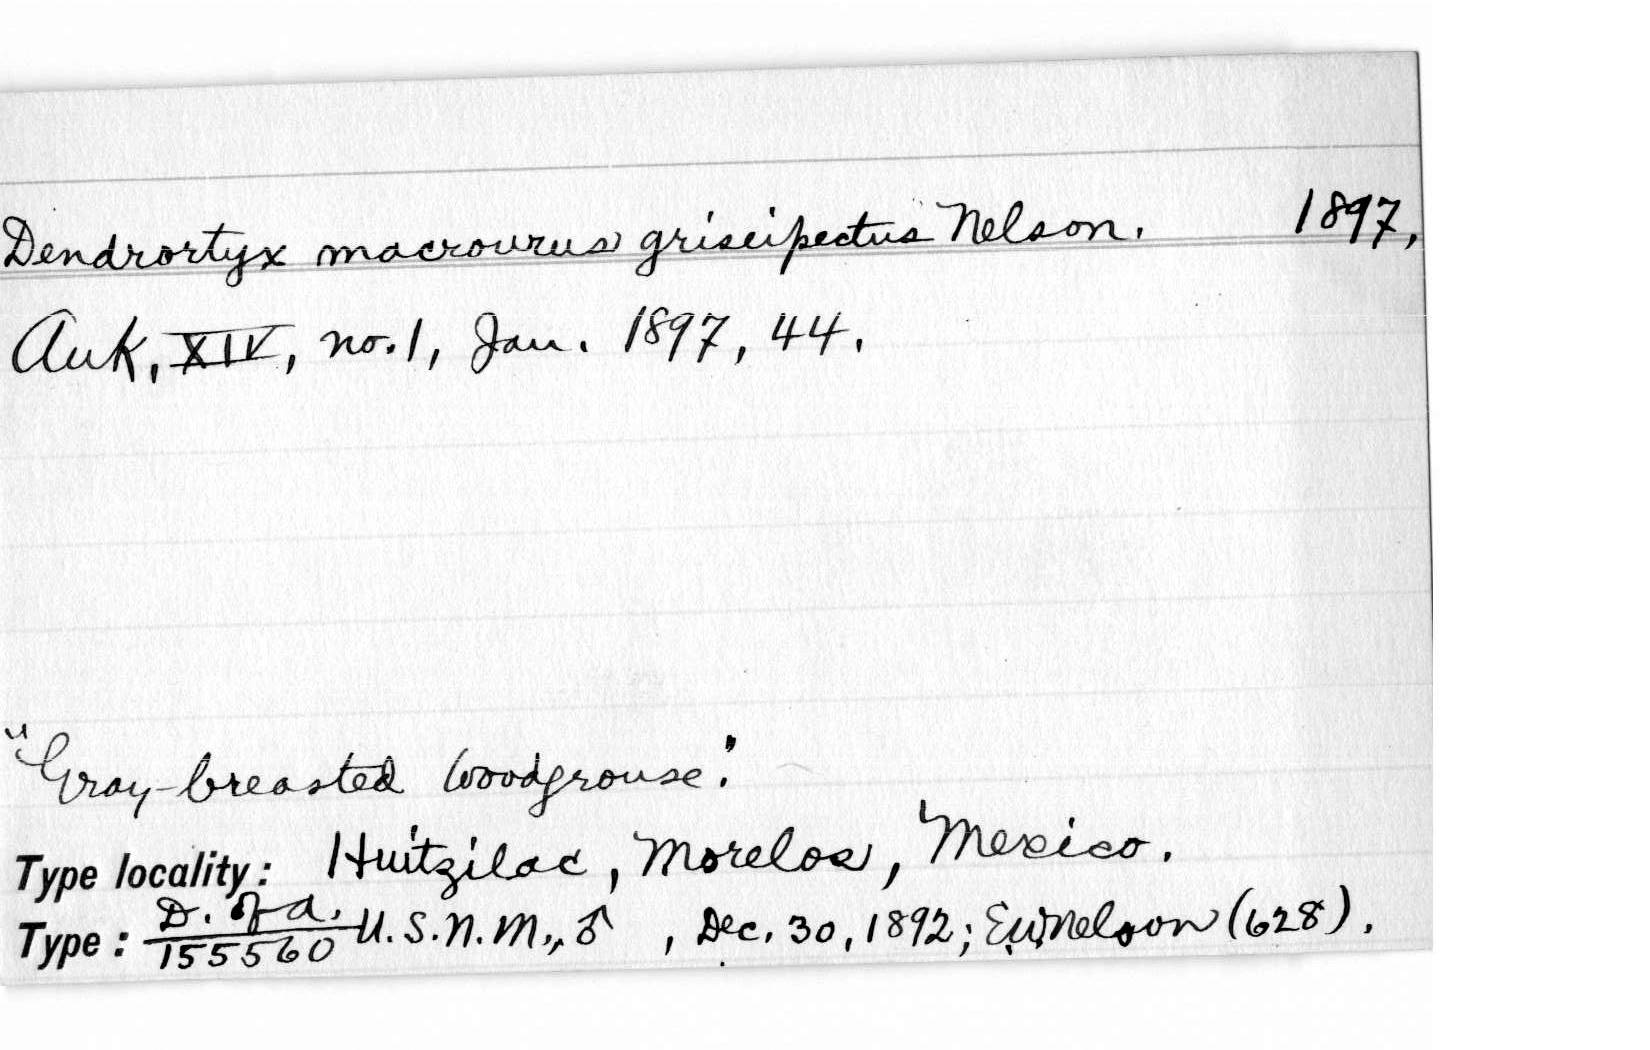 Dendrortyx macrourus griseipectus Nelson. 1897,
Auk, XIV, no. 1, Jan. 1897, 44.
"Gray-breasted Woodgrouse."
Type locality: Huitzilac, Morelos, Mexico.
Type: D. of A. / 155560 U.S.N.M., ♂ , Dec. 30, 1892; E.W. Nelson (628).